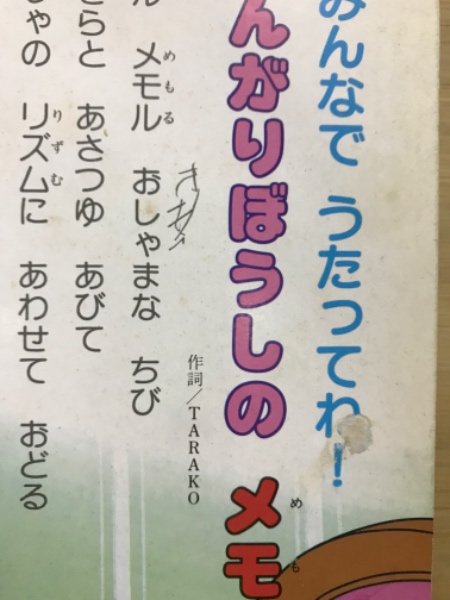 みんなで うたってね!
んがりぼうしの メモ
めも
作詞/TARAKO
ル メモル おしゃまな ちび
めもる
きらと あさつゆ あびて
ゃの リズムに あわせて おどる
りずむ